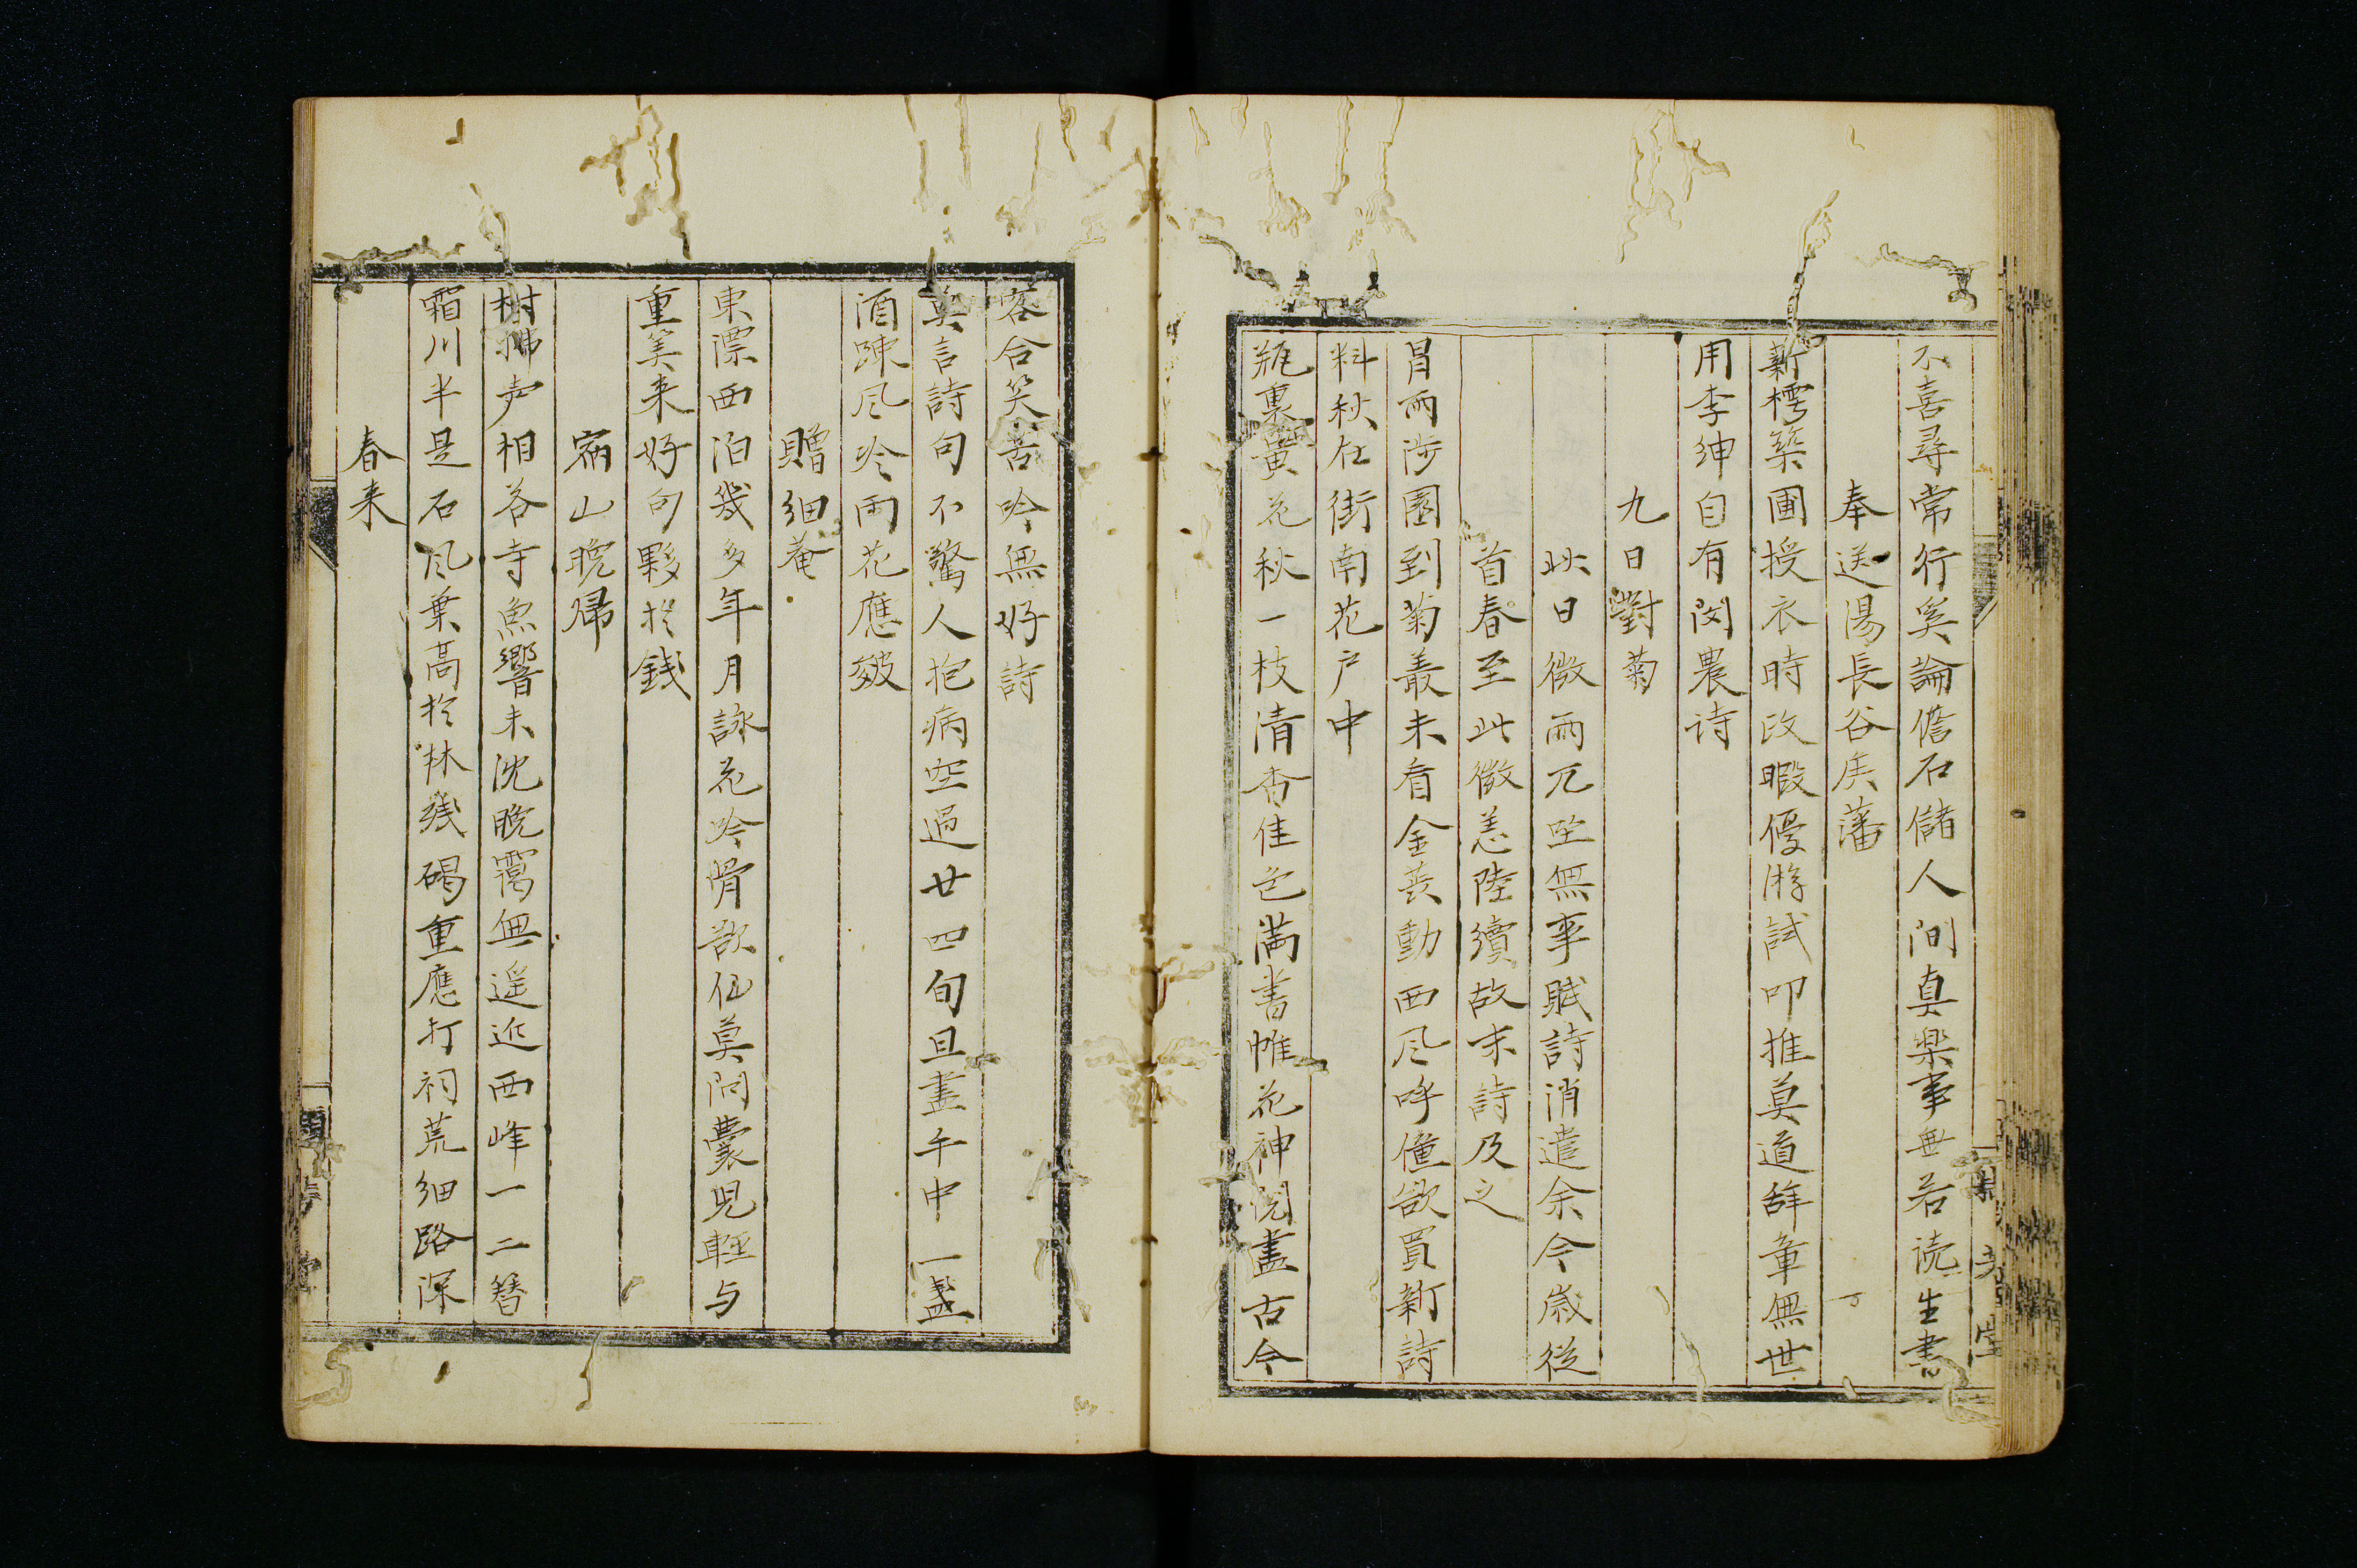 不喜尋常行奚論儋石儲人间真楽事無若读生書
奉送湯長谷矦藩
新樗築圃授衣時政暇優游試叩推莫道辞章無世
用李绅自有闵農诗
九日對菊
此日微雨兀坐無事賦詩消遣余今歳従
首春至此微恙陸續故末詩及之
冒雨涉園到菊叢未看金蕊動西风呼僮欲買新詩
料秋在街南花戸中
瓶裏黄花秋一枝清香佳色満書帷花神阅盡古今
客合笑苦吟無好詩
莫言詩句不驚人抱病空過廿四旬旦盡午中一盞
酒踈风吟雨花應皴
贈细菴
東漂西泊幾多年月詠花吟骨欲仙莫问嚢児輕与
重笑来好句夥於錢
宿山晩帰
樹拂声相答寺魚響未沈晩靄無遥近西峰一二簪
霜川半是石风葉高於林残碣重應打祠荒细路深
春来